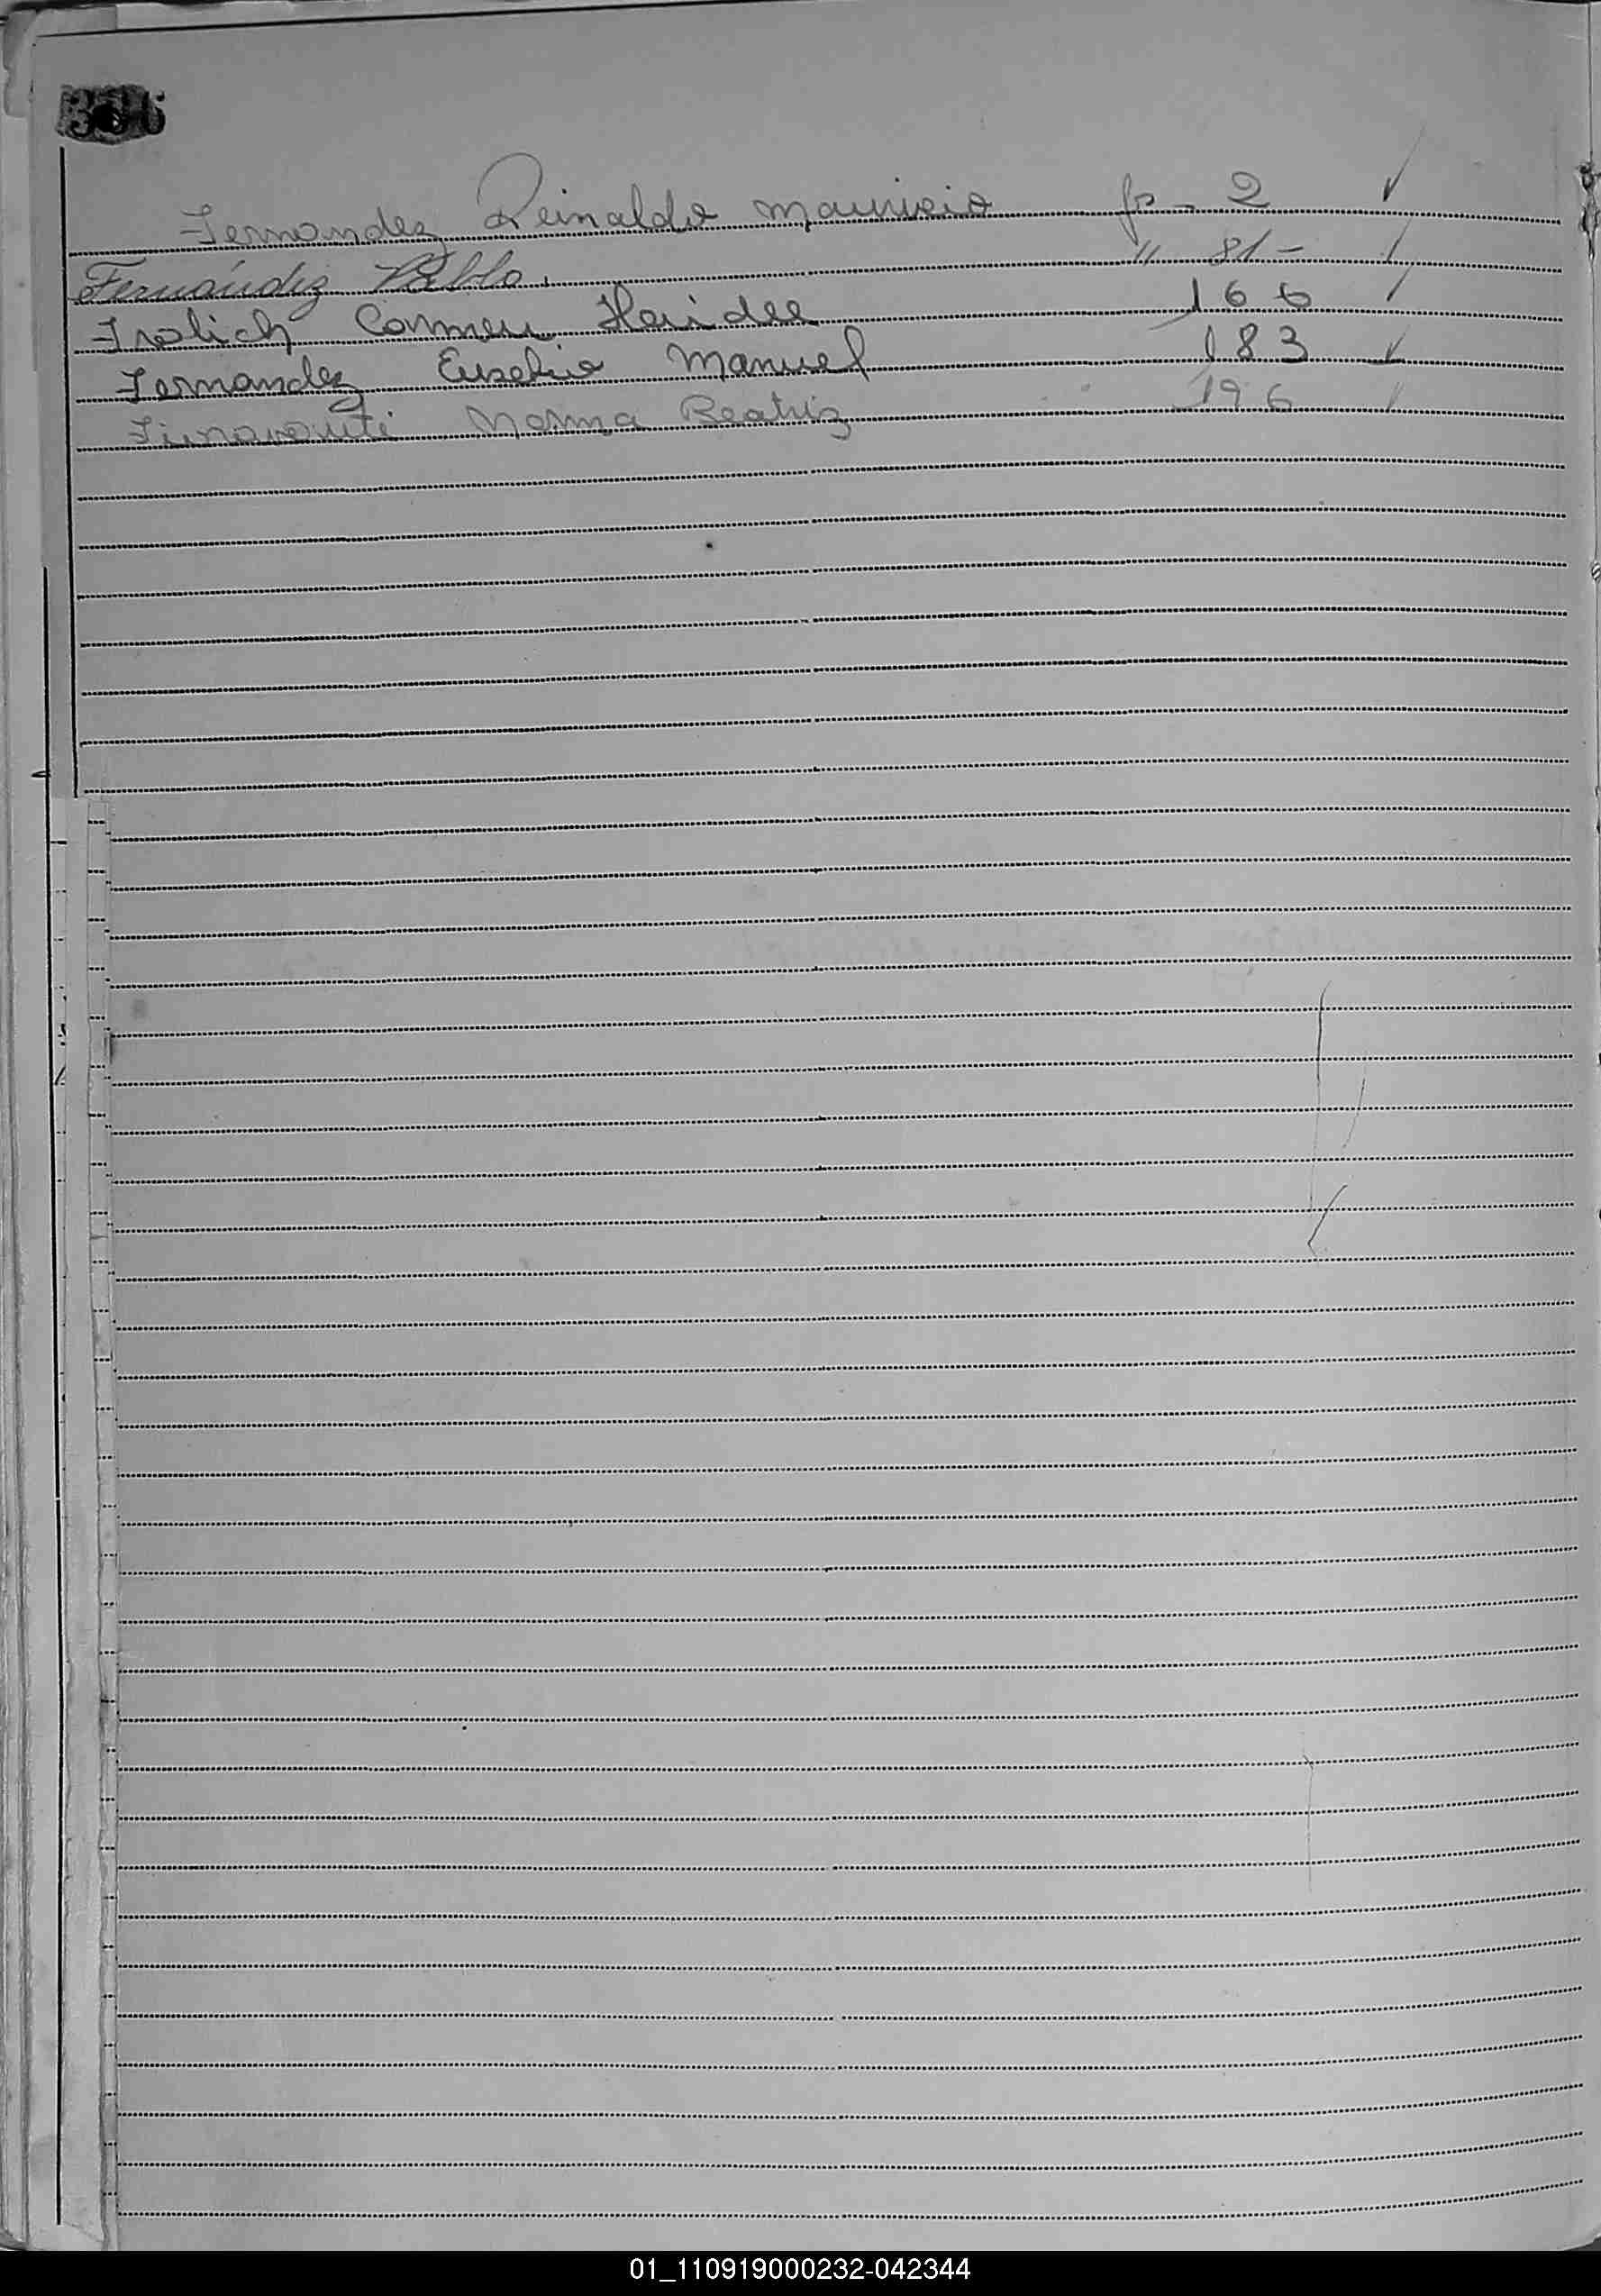 Fernandez Reinaldo Mauricio fs - 2
Fernández Pablo. " 81 -
Frolich Carmen Haidee 166
Fernandez Eusebio Manuel 183
Norma Beatriz 196
01_110919000232-042344